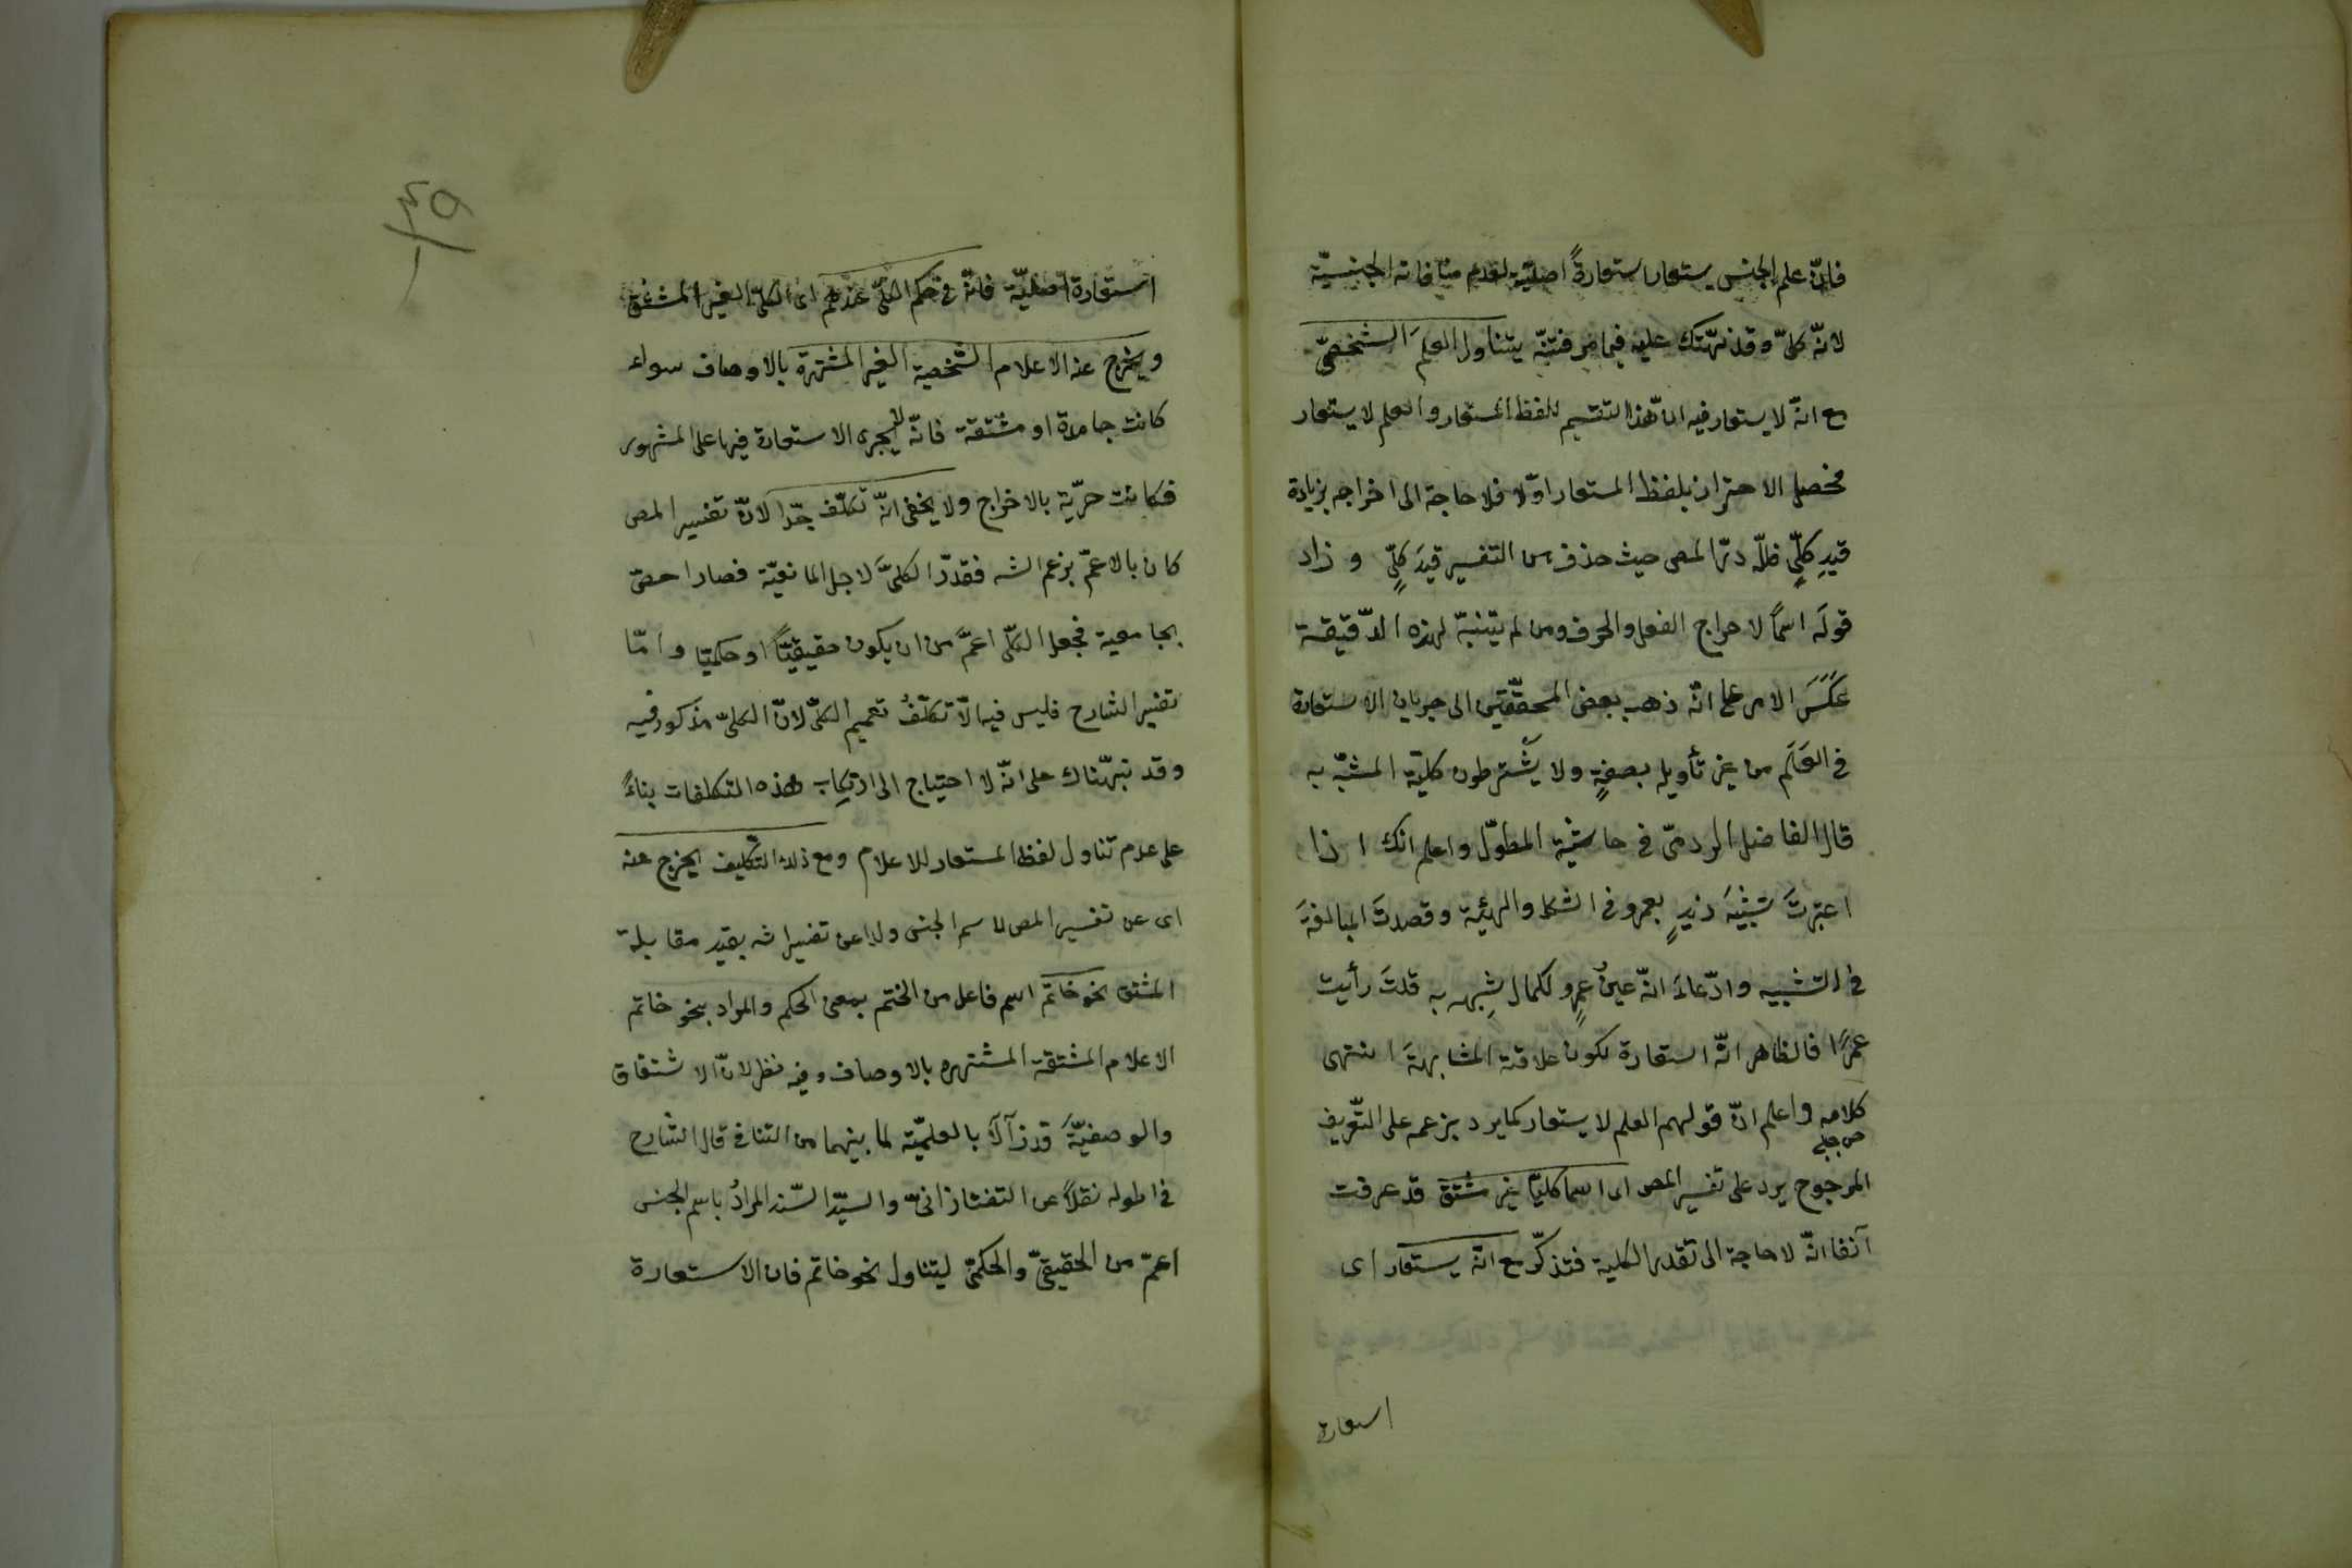 فانّ علم الجنس يستعار استعارةً اصليّة لعدم منافاته الجنسيّة
لانّه كلّىّ وقد نبّهتك عليه فيما مر فتنبّه يتناول العلمَ الشخصىّ
مع انّه لا يستعار فيه انّ هذا التقسيم للفظ المستعار والعلم لا يستعار
فحصل الاحتراز بلفظ المستعار اوّلا فلا حاجة الى اخراجه بزيادة
قيدِ كلّىٍّ فللّه درّ المص حيث حذف من التفسير قيدَ كلّىٍّ وزاد
قولَه اسمًا لاخراج الفعل والحرف ومن لم يتنبّه لهذه الدّقيقة
عَكَسَ الامر على انّه ذهب بعض المحقّقين الى جريان الاستعارة
فى العَلَم من غير تأويله بصفةٍ ولا يَشترطون كليّة المشبّه به
قال الفاضل الردمىّ فى حاشية المطوّل واعلم انك اذا
اعتبرتَ تشبيهَ زيدٍ بعمرو فى الشكل والهيئة وقصدتَ المبالغةَ
فى التشبيه وادّعاءَ انّه عينُ عمرٍو لكمال شِبهه به قلتَ رأيت
عمرًا فالظاهر انّه استعارة لكون علاقته المشابهةَ انتهى
كلامه واعلم انّ قولهم العلم لا يستعار كما يرد بزعمه على التّعريف
حسن چلبى
المرجوح يرد على تفسير المص اى اسما كليّا غير مشتق قد عرفت
آنفا انّه لا حاجة الى تقدير الكلية فتذكّر مع انّه يستعار اى
استعارة
٤٩
استعارة اصليّة فانّه فى حكم الكلّىّ عندهم اى الكلّىّ الغير المشتق
ويخرج عنه الاعلام الشخصية الغير المشتهرة بالاوصاف سواء
كانت جامدة او مشتقة فانّه لا يجرى الاستعارة فيها على المشهور
فكانت حرّية بالاخراج ولا يخفى انّه تكلّف جدّا لانّ تفسير المص
كان بالاعمّ بزعم الشه فقدّر الكلىَّ لاجل المانعيّة فصار احصّ
بجامعية فجعل الكلّى اعمَّ من ان يكون حقيقيًّا او حكميّا وامّا
تفسير الشارح فليس فيه الّا تكلّفُ تعميم الكلّىّ لانّ الكلىّ مذكور فيه
وقد نبّهناك على انّه لا احتياج الى ارتكاب هذه التكلفات بناءً
على عدم تناول لفظ المستعار للاعلام ومع ذلك التكليف يخرج عنه
اى عن تفسير المص لاسم الجنس ولا عن تفسير الشه بقيد مقابلة
المشتق نحو خاتم اسم فاعل من الختم بمعنى الحكم والمراد بنحو خاتم
الاعلام المشتقة المشتهره بالاوصاف وفيه نظر لانّ الاشتقاق
والوصفيّةَ قد زالا بالعلميّة لما بينهما من التنافى قال الشارح
فى اطوله نقلًا عن التفتازانىّ والسيّد السّند المرادُ باسم الجنس
اعمّ من الحقيقىّ والحكمىّ ليتناول نحو خاتم فان الاستعارة